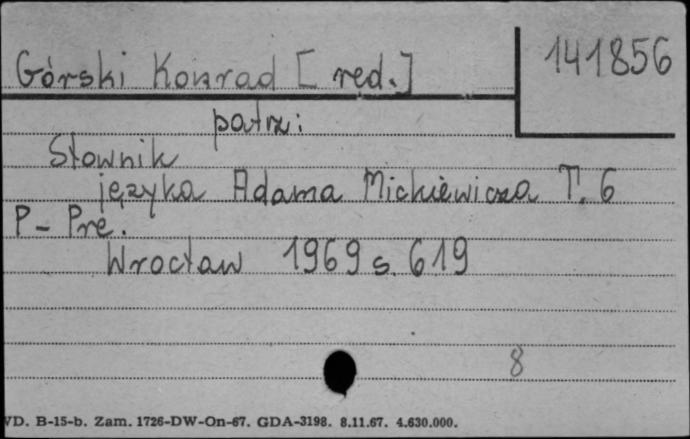 Górski Konrad [red.]
141856
patrz:
Słownik
języka Adama Mickiewicza T. 6
P - Pre.
Wrocław 1969 s. 619
8
VD. B-15-b. Zam. 1726-DW-On-67. GDA-3198. 8.11.67. 4.630.000.